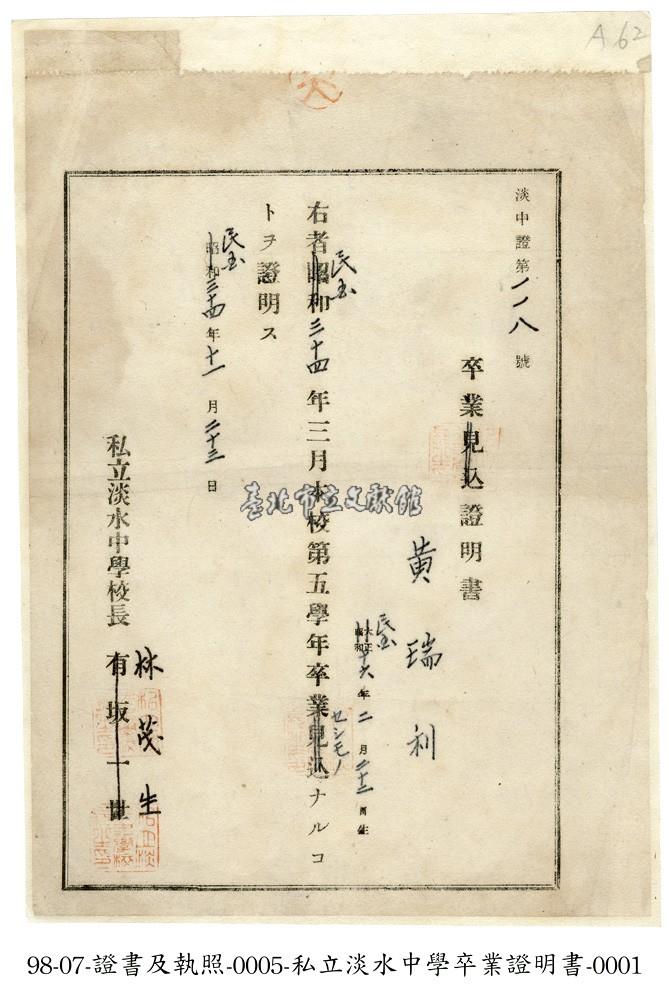 A 62
淡中證第一一八號
卒業見込證明書
黃瑞利
民國
大正
昭和
十六年二月二十二日生
右者昭和三十四年三月本校第五學年卒業見込ナルコ
民國
セシモノ
トヲ證明ス
昭和三十四年十一月二十三日
民國
私立淡水中學校長 有坂一世
林茂生
臺北市立文獻館
98-07-證書及執照-0005-私立淡水中學卒業證明書-0001